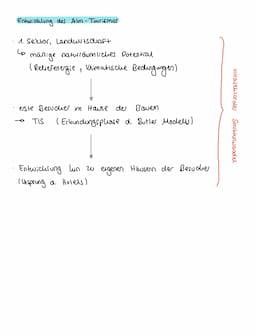 Entwicklung des Alm-Tourismus
· 1. Sektor, Landwirtschaft
↳ mäßige naturräumliches Potential
(Reliefenergie, klimatische Bedingungen)
· erste Besucher im Hause der Bauern
→ TIS (Erkundungsphase d. Butler Modells)
· Entwicklung hin zu eigenen Häusern der Besucher
(Ursprung d. Hotels)
Strukturwandel